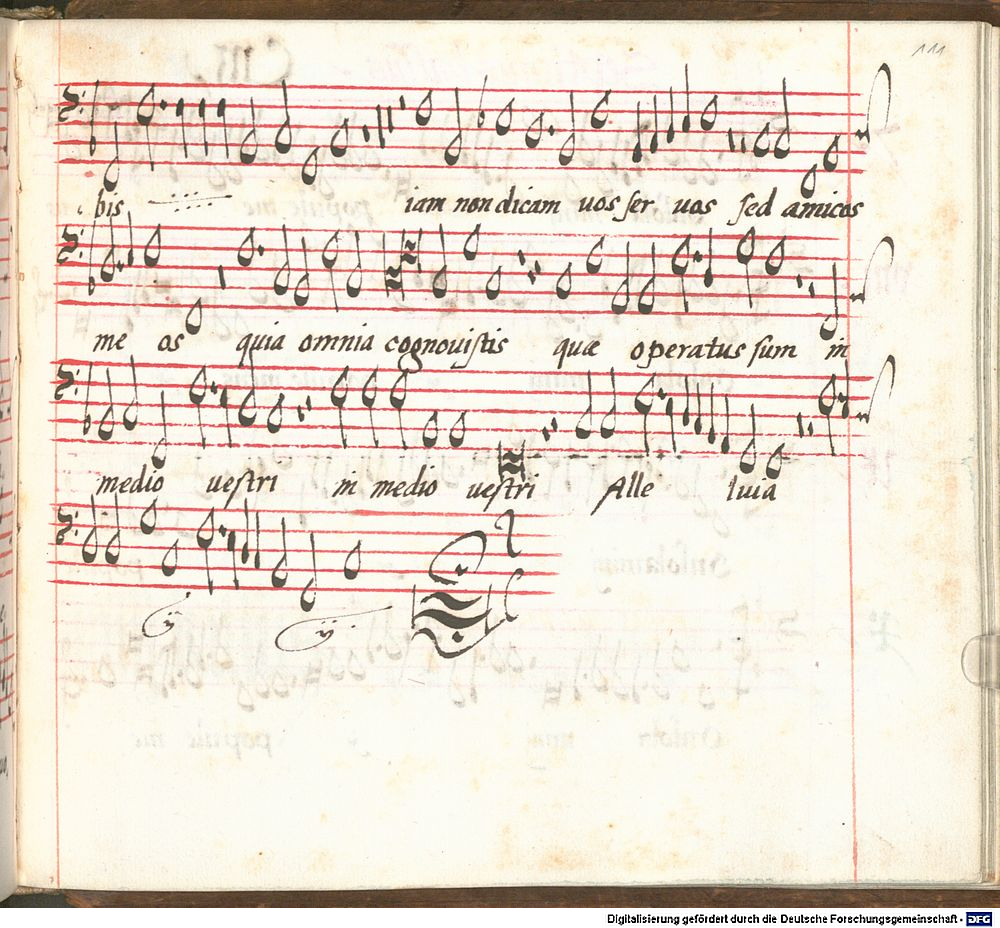 111
bis iam non dicam uos ser uos sed amicos
me os quia omnia cognouistis quæ operatus sum in
medio uestri in medio uestri Alle luia
Digitalisierung gefördert durch die Deutsche Forschungsgemeinschaft - DFG